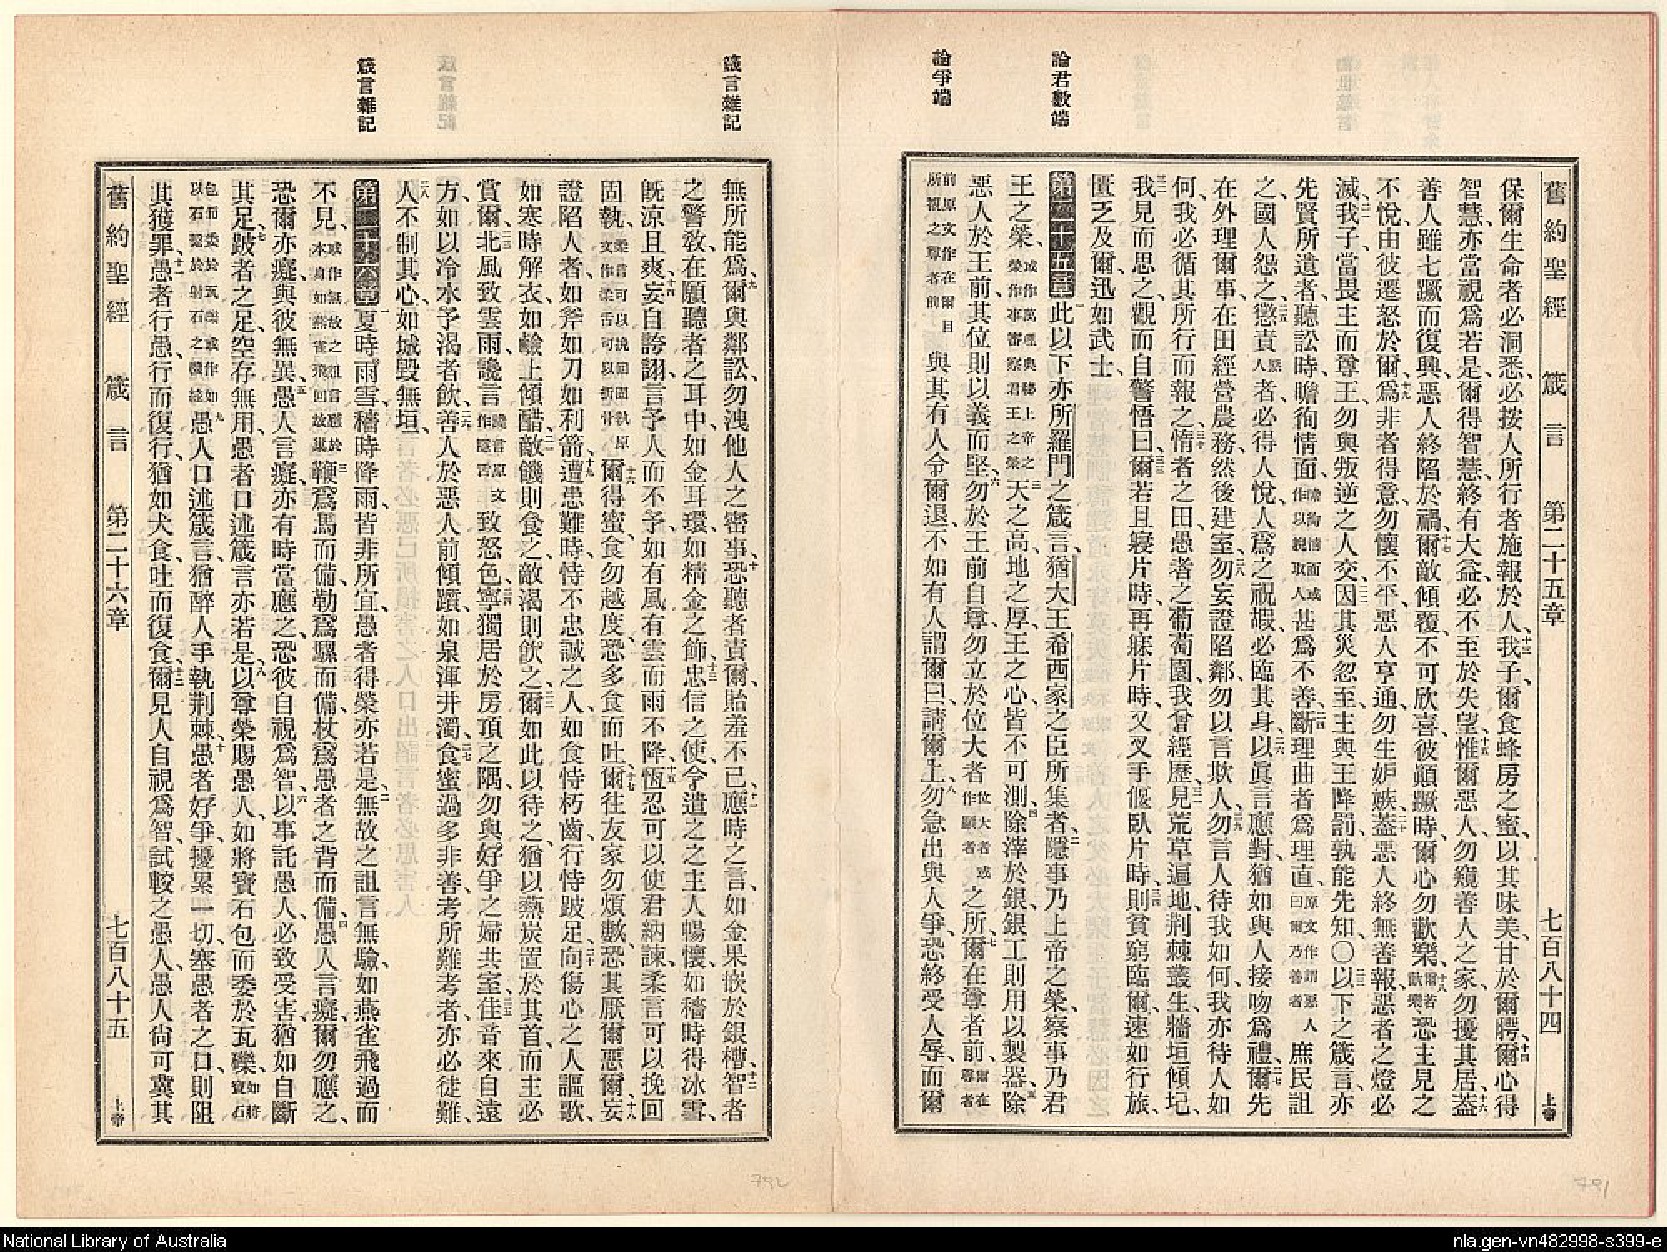 論君數端
論爭端
舊約聖經 箴言 第二十五章 七百八十四 上帝
保爾生命者必洞悉、必按人所行者施報於人、十三我子爾食蜂房之蜜、以其味美甘於爾腭、十四爾心得
智慧、亦當視爲若是、爾得智慧、終有大益、必不至於失望、惟爾惡人、勿窺善人之家、勿擾其居、十六蓋
善人雖七蹶而復興、惡人終陷於禍、十七爾敵傾覆、不可欣喜、彼顛蹶時、爾心勿歡樂、十八恐主見之
不悅、由彼遷怒於爾、十九爲非者得意、勿懷不平、惡人亨通、勿生妒嫉、二十蓋惡人終無善報、惡者之燈必
滅、我子、當畏主而尊王、勿與叛逆之人交、因其災忽至、主與王降罰、孰能先知、〇以下之箴言、亦
先賢所遺者、聽訟時瞻徇情面、甚爲不善、二四斷理曲者爲理直、庶民詛
之、國人怨之、二五懲責惡人者、必得人悅、人爲之祝嘏、必臨其身、二六以眞言應對、猶如與人接吻爲禮、二七爾先
在外理爾事、在田經營農務、然後建室、二八勿妄證陷鄰、勿以言欺人、二九勿言人待我如何、我亦待人如
何、我必循其所行而報之、三十惰者之田、愚者之葡萄園、我曾經歷、三一見荒草遍地、荊棘叢生、牆垣傾圮、
三二我見而思之、觀而自警悟曰、三三爾若且寢片時、再寐片時、又叉手偃臥片時、三四則貧窮臨爾、速如行旅、
匱乏及爾、迅如武士、
第二十五章 一此以下亦所羅門之箴言、猶大王希西家之臣所集者、二隱事乃上帝之榮、察事乃君
王之榮、三天之高、地之厚、王之心、皆不可測、四除滓於銀、銀工則用以製器、五除
惡人於王前、其位則以義而堅、六勿於王前自尊、勿立於位大者之所、七爾在尊者前、
與其有人令爾退、不如有人謂爾曰、請爾上、八勿急出與人爭、恐終受人辱、而爾
箴言雜記
箴言雜記
無所能爲、九爾與鄰訟、勿洩他人之密事、十恐聽者責爾、貽羞不已、十一應時之言、如金果嵌於銀槽、十二智者
之警敎、在願聽者之耳中、如金耳環、如精金之飾、十三忠信之使、令遣之之主人暢懷、如穡時得冰雪、
旣涼且爽、十四妄自誇詡言予人而不予、如有風有雲而雨不降、十五恆忍可以使君納諫、柔言可以挽回
固執、十六爾得蜜、食勿越度、恐多食而吐、十七爾往友家勿煩數、恐其厭爾惡爾、十八妄
證陷人者、如斧如刀如利箭、十九遭患難時、恃不忠誠之人、如食恃朽齒、行恃跛足、二十向傷心之人謳歌、
如寒時解衣、如鹼上傾醋、二一敵饑則食之、敵渴則飲之、二二爾如此以待之、猶以爇炭置於其首、而主必
賞爾、二三北風致雲雨、讒言致怒色、二四寧獨居於房頂之隅、勿與好爭之婦共室、二五佳音來自遠
方、如以冷水予渴者飲、二六善人於惡人前傾躓、如泉渾井濁、二七食蜜過多非善、考所難考者、亦必徒難、
二八人不制其心、如城毀無垣、
第二十六章 一夏時雨雪、穡時降雨、皆非所宜、愚者得榮亦若是、二無故之詛言無驗、如燕雀飛過而
不見、三鞭爲馬而備、勒爲騾而備、杖爲愚者之背而備、四愚人言癡、爾勿應之、
恐爾亦癡、與彼無異、五愚人言癡、亦有時當應之、恐彼自視爲智、六以事託愚人、必致受害、猶如自斷
其足、七跛者之足、空存無用、愚者口述箴言亦若是、八以尊榮賜愚人、如將寶石包而委於瓦礫、
九愚人口述箴言、猶醉人手執荊棘、十愚者好爭擾累一切、塞愚者之口、則阻
其獲罪、十一愚者行愚、行而復行、猶如犬食吐而復食、十二爾見人自視爲智、試較之愚人、愚人尙可冀其
舊約聖經 箴言 第二十六章 七百八十五 上帝
National Library of Australia
nla.gen-vn482998-s399-e